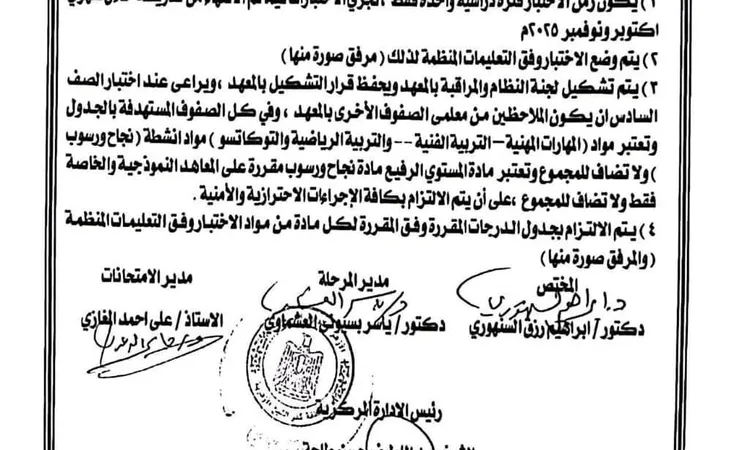 ١ ) يكون زمن الاختبار فترة دراسية واحدة فقط ،
اكتوبر ونوفمبر ٢٠٢٥م
٢ ) يتم وضع الاختبار وفق التعليمات المنظمة لذلك ( مرفق صورة منها )
٣ ) يتم تشكيل لجنة النظام والمراقبة بالمعهد ويحفظ قرار التشكيل بالمعهد ، ويراعى عند اختبار الصف
السادس ان يكون الملاحظين من معلمى الصفوف الأخرى بالمعهد ، وفي كل الصفوف المستهدفة بالجدول
وتعتبر مواد ( المهارات المهنية – التربية الفنية -- والتربية الرياضية والتوكاتسو ) مواد انشطة ( نجاح ورسوب
) ولا تضاف للمجموع وتعتبر مادة المستوي الرفيع مادة نجاح ورسوب مقررة على المعاهد النموذجية والخاصة
فقط ولا تضاف للمجموع ، على أن يتم الالتزام بكافة الإجراءات الاحترازية والأمنية .
٤ ) يتم الالتزام بجدول الدرجات المقررة وفق المقررة لكل مادة من مواد الاختبار وفق التعليمات المنظمة
( والمرفق صورة منها )
المختص مدير المرحلة مدير الامتحانات
دكتور / ابراهيم رزق السنهوري دكتور / ياسر بسيوني العشماوي الاستاذ / على احمد المغازي
رئيس الادارة المركزية